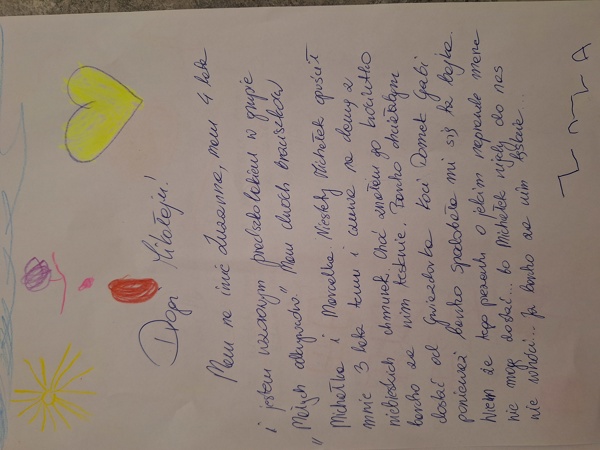 Drogi Mikołaju!
Mam na imię Zuzanna, mam 4 lata
i jestem wzorowym przedszkolakiem w grupie
„Małych odkrywców". Mam dwóch braciszków
Michałka i Marcelka. Niestety Michałek opuścił
mnie 3 lata temu i czuwa na demną z
niebieskich chmurek. Choć znałam go króciutko
bardzo za nim tęsknie. Bardzo chciałabym
dostać od Gwiazdorka Koci Domek Gabi
ponieważ bardzo spodobała mi się ta bajka.
Wiem że tego prezentu o jakim naprawdę marzę
nie mogę dostać... bo Michałek nigdy do nas
nie wróci... Ja bardzo za nim tęsknie...